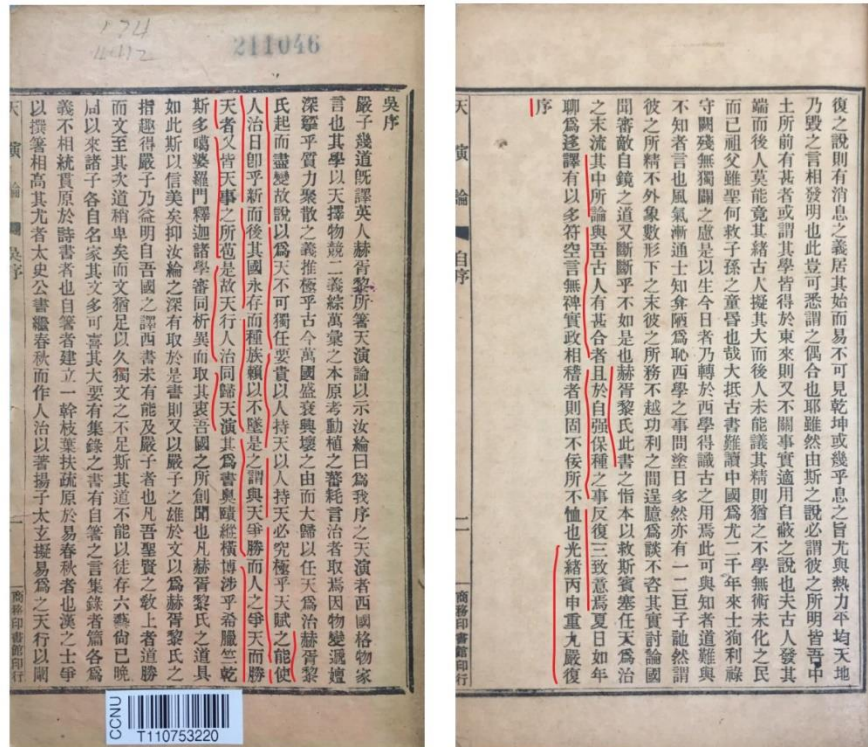 174
211046
吳序
嚴子幾道旣譯英人赫胥黎所箸天演論以示汝綸曰爲我序之天演者西國格物家
言也其學以天擇物競二義綜萬彙之本原考動植之蕃耗言治者取焉因物變遞嬗
深揅乎質力聚散之義推極乎古今萬國盛衰興壞之由而大歸以任天爲治赫胥黎
氏起而盡變故說以爲天不可獨任要貴以人持天以人持天必究極乎天賦之能使
人治日卽乎新而後其國永存而種族賴以不墜是之謂與天爭勝而人之爭天而勝
天者又皆天事之所苞是故天行人治同歸天演其爲書奧賾縱橫博涉乎希臘竺乾
斯多噶婆羅門釋迦諸學審同析異而取其衷吾國之所創聞也凡赫胥黎氏之道具
如此斯以信美矣抑汝綸之深有取於是書則又以嚴子之雄於文以爲赫胥黎氏之
指趣得嚴子乃益明自吾國之譯西書未有能及嚴子者也凡吾聖賢之敎上者道勝
而文至其次道稍卑矣而文猶足以久獨文之不足斯其道不能以徒存六藝尙已晚
周以來諸子各自名家其文多可喜其大要有集錄之書有自箸之言集錄者篇各爲
義不相統貫原於詩書者也自箸者建立一幹枝葉扶疏原於易春秋者也漢之士爭
以撰箸相高其尤者太史公書繼春秋而作人治以著揚子太玄擬易爲之天行以闡
天演論 吳序 一 商務印書館印行
CCNU
T110753220
復之說則有消息之義居其始而易不可見乾坤或幾乎息之旨尤與熱力平均天地
乃毀之言相發明也此豈可悉謂之偶合也耶雖然由斯之說必謂彼之所明皆吾中
土所前有甚者或謂其學皆得於東來則又不關事實適用自蔽之說也夫古人發其
端而後人莫能竟其緒古人擬其大而後人未能議其精則猶之不學無術未化之民
而已祖父雖聖何救子孫之童昏也哉大抵古書難讀中國爲尤二千年來士狥利祿
守闕殘無獨闢之慮是以生今日者乃轉於西學得識古之用焉此可與知者道難與
不知者言也風氣漸通士知弇陋爲恥西學之事問塗日多然亦有一二巨子訑然謂
彼之所精不外象數形下之末彼之所務不越功利之間逞臆爲談不咨其實討論國
聞審敵自鏡之道又斷斷乎不如是也赫胥黎氏此書之恉本以救斯賓塞任天爲治
之末流其中所論與吾古人有甚合者且於自强保種之事反復三致意焉夏日如年
聊爲迻譯有以多符空言無裨實政相稽者則固不佞所不恤也光緒丙申重九嚴復
序
天演論 自序 二 商務印書館印行